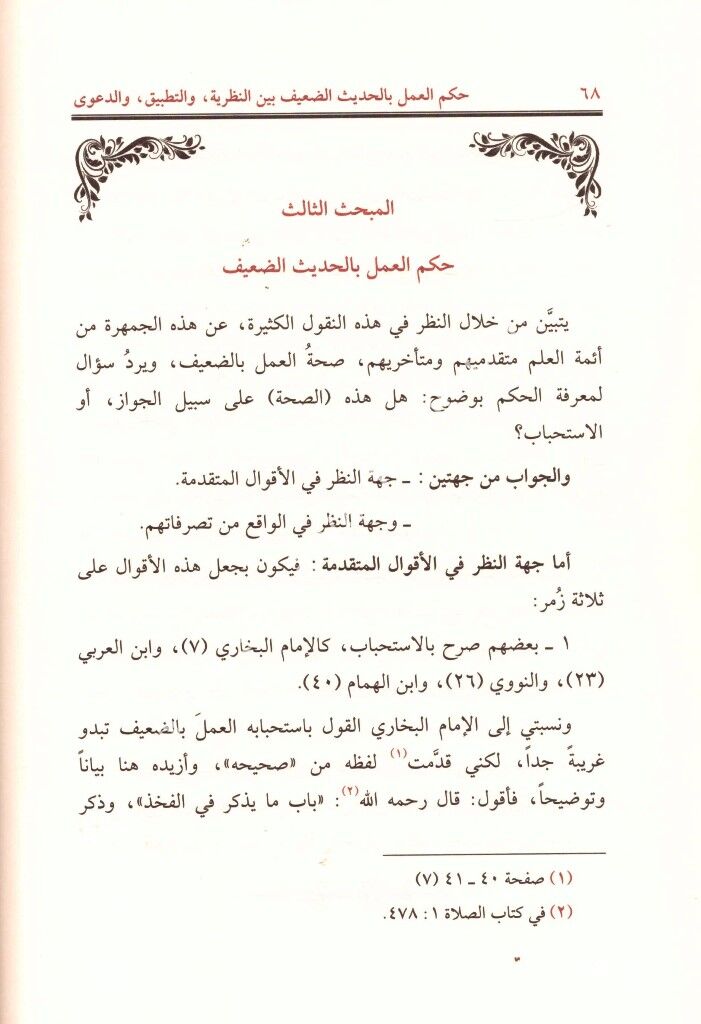 ٦٨ حكم العمل بالحديث الضعيف بين النظرية، والتطبيق، والدعوى
المبحث الثالث
حكم العمل بالحديث الضعيف
يتبيَّن من خلال النظر في هذه النقول الكثيرة، عن هذه الجمهرة من
أئمة العلم متقدميهم ومتأخريهم، صحةُ العمل بالضعيف، ويردُ سؤال
لمعرفة الحكم بوضوح: هل هذه (الصحة) على سبيل الجواز، أو
الاستحباب؟
والجواب من جهتين: ـ جهة النظر في الأقوال المتقدمة.
ـ وجهة النظر في الواقع من تصرفاتهم.
أما جهة النظر في الأقوال المتقدمة: فيكون بجعل هذه الأقوال على
ثلاثة زُمر:
١ ـ بعضهم صرح بالاستحباب، كالإمام البخاري (٧)، وابن العربي
(٢٣)، والنووي (٢٦)، وابن الهمام (٤٠).
ونسبتي إلى الإمام البخاري القول باستحبابه العملَ بالضعيف تبدو
غريبةً جداً، لكني قدَّمت(١) لفظه من «صحيحه»، وأزيده هنا بياناً
وتوضيحاً، فأقول: قال رحمه الله(٢): «باب ما يذكر في الفخذ»، وذكر
(١) صفحة ٤٠ ـ ٤١ (٧)
(٢) في كتاب الصلاة ١: ٤٧٨.